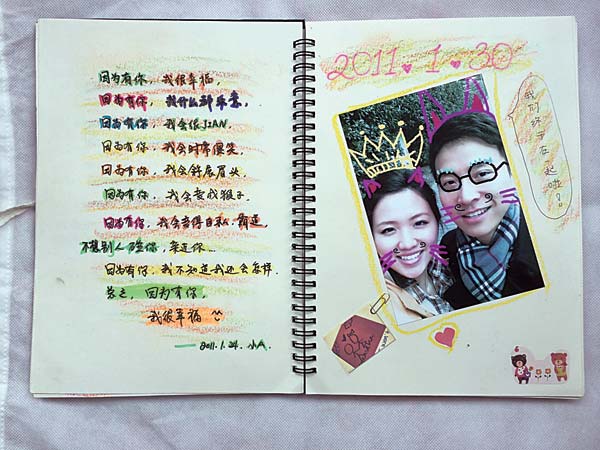 因为有你，我很幸福，
因为有你，我什么都乐意，
因为有你，我会很JIAN
因为有你，我会时常傻笑，
因为有你，我会舒展眉头，
因为有你，我会变成猴子，
因为有你，我会变得自私，霸道，
不想别人碰你，亲近你…
因为有你，我不知道我还会怎样，
总之，因为有你，
我很幸福
2011.1.24. 小A.
2011.1.30
我们终于在一起啦！